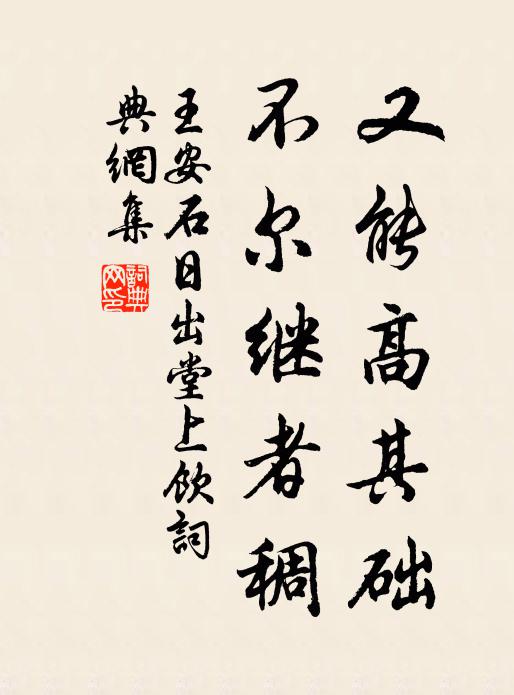 又能高其础
不尔继者稠
王安石日出堂上饮詞
典網集
詞典
网印